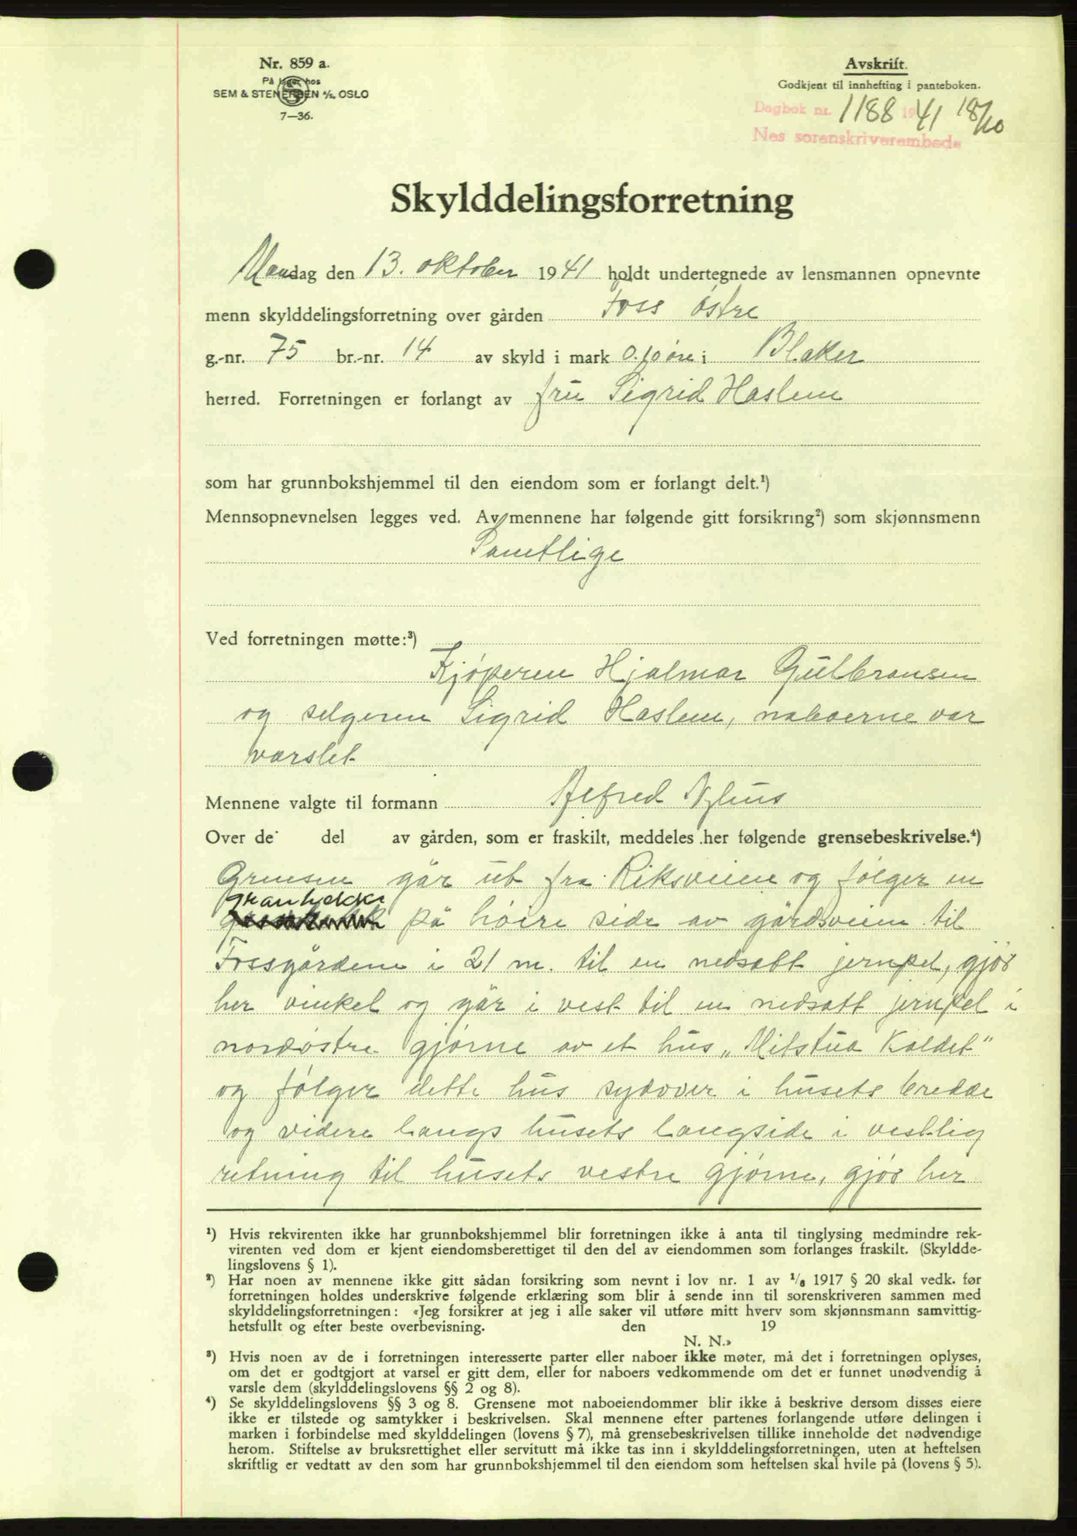 Nr. 859 a.
På lager hos
SEM & STENERSEN A/S, OSLO
7—36.
Avskrift.
Godkjent til innhefting i panteboken.
Dagbok nr. 1188 1941 18/10
Nes sorenskriverembede
Skylddelingsforretning
Mandag den 13. oktober 1941 holdt undertegnede av lensmannen opnevnte
menn skylddelingsforretning over gården Foss østre
g.-nr. 75 br.-nr. 14 av skyld i mark 0.10 øre i Blaker
herred. Forretningen er forlangt av fru Sigrid Haslem
som har grunnbokshjemmel til den eiendom som er forlangt delt.¹)
Mennsopnevnelsen legges ved. Av mennene har følgende gitt forsikring²) som skjønnsmenn
Samtlige
Ved forretningen møtte:³)
Kjøperen Hjalmar Gulbransen
og selgeren Sigrid Haslem, naboerne var
varslet
Mennene valgte til formann Alfred Nyhus
Over de del av gården, som er fraskilt, meddeles her følgende grensebeskrivelse.⁴)
Grensen går ut fra Riksveien og følger en
granhekke
på høire side av gårdsveien til
Fossgårdene i 21 m. til en nedsatt jernpel, gjør
her vinkel og går i vest til en nedsatt jernpel i
nordøstre gjørne av et hus „Milstua Kaldet"
og følger dette hus sydover i husets bredde
og videre langs husets langside i vestlig
retning til husets vestre gjørne, gjør her
¹) Hvis rekvirenten ikke har grunnbokshjemmel blir forretningen ikke å anta til tinglysing medmindre rek-
virenten ved dom er kjent eiendomsberettiget til den del av eiendommen som forlanges fraskilt. (Skyldde-
lingslovens § 1).
²) Har noen av mennene ikke gitt sådan forsikring som nevnt i lov nr. 1 av 1/6 1917 § 20 skal vedk. før
forretningen holdes underskrive følgende erklæring som blir å sende inn til sorenskriveren sammen med
skylddelingsforretningen: «Jeg forsikrer at jeg i alle saker vil utføre mitt hverv som skjønnsmann samvittig-
hetsfullt og efter beste overbevisning. den 19
N. N.»
³) Hvis noen av de i forretningen interesserte parter eller naboer ikke møter, må det i forretningen oplyses,
om det er godtgjort at varsel er gitt dem, eller for naboers vedkommende om det er funnet unødvendig å
varsle dem (skylddelingslovens §§ 2 og 8).
⁴) Se skylddelingslovens §§ 3 og 8. Grensene mot naboeiendommer blir ikke å beskrive dersom disses eiere
ikke er tilstede og samtykker i beskrivelsen. Skal mennene efter partenes forlangende utføre delingen i
marken i forbindelse med skylddelingen (lovens § 7), må grensebeskrivelsen tillike inneholde det nødvendige
herom. Stiftelse av bruksrettighet eller servitutt må ikke tas inn i skylddelingsforretningen, uten at heftelsen
skriftlig er vedtatt av den som har grunnbokshjemmel til den eiendom som heftelsen skal hvile på (lovens § 5).